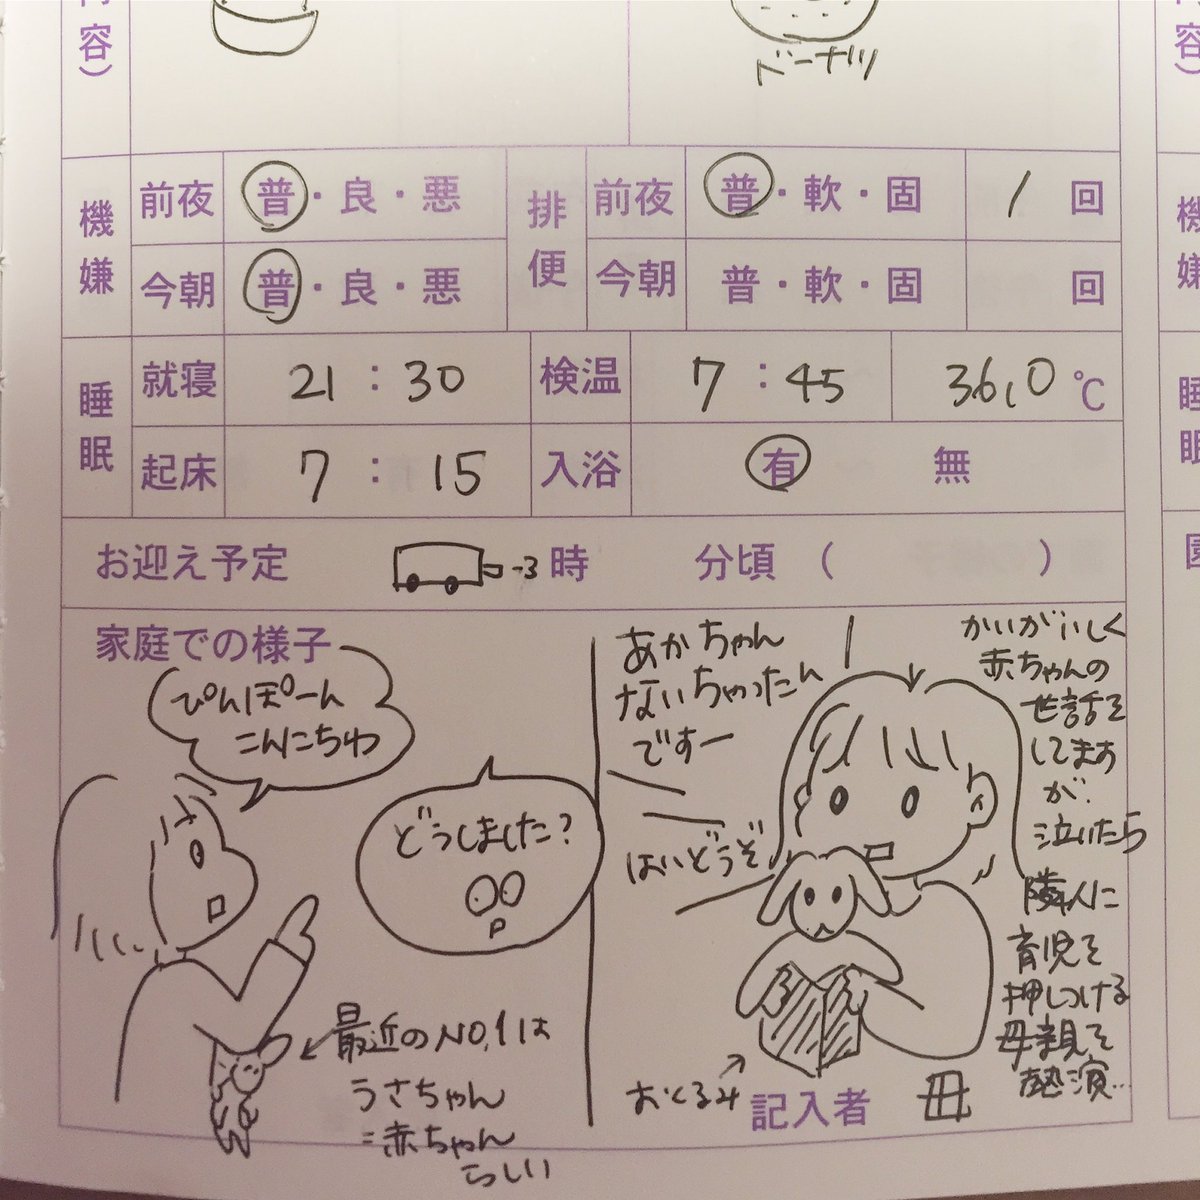 内容）
ドーナツ
容）
機嫌
前夜 普・良・悪
今朝 普・良・悪
排便
前夜 普・軟・固 1 回
今朝 普・軟・固 回
機嫌
睡眠
就寝 21:30
検温 7:45 36.0 ℃
起床 7:15
入浴 有 無
睡眠
お迎え予定 時 分頃（ ）
園
家庭での様子
ぴんぽーん
こんにちわ
どうしました?
最近のNO.1は
うさちゃん
=赤ちゃん
らしい
あかちゃん
ないちゃったん
ですー
はいどうぞ
かいがいしく
赤ちゃんの
世話を
してますが、
泣いたら
隣人に
育児を
押しつける
母親を
熱演…
おくるみ
記入者 母